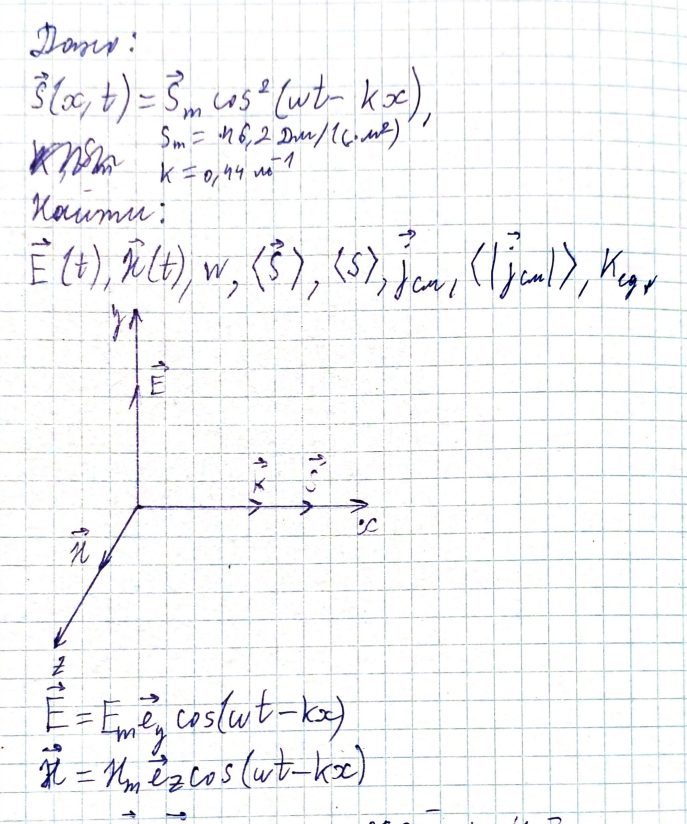 Дано:
S⃗(x,t) = S⃗m cos²(ωt - kx),
Sm = 46,2 Дж/(с·м²)
k = 0,44 м⁻¹
Найти:
E⃗(t), H⃗(t), w, ⟨S⃗⟩, ⟨S⟩, j⃗см, ⟨|j⃗см|⟩, Kед.
y
E⃗
k⃗
x
H⃗
z
E⃗ = Em e⃗y cos(ωt - kx)
H⃗ = Hm e⃗z cos(ωt - kx)